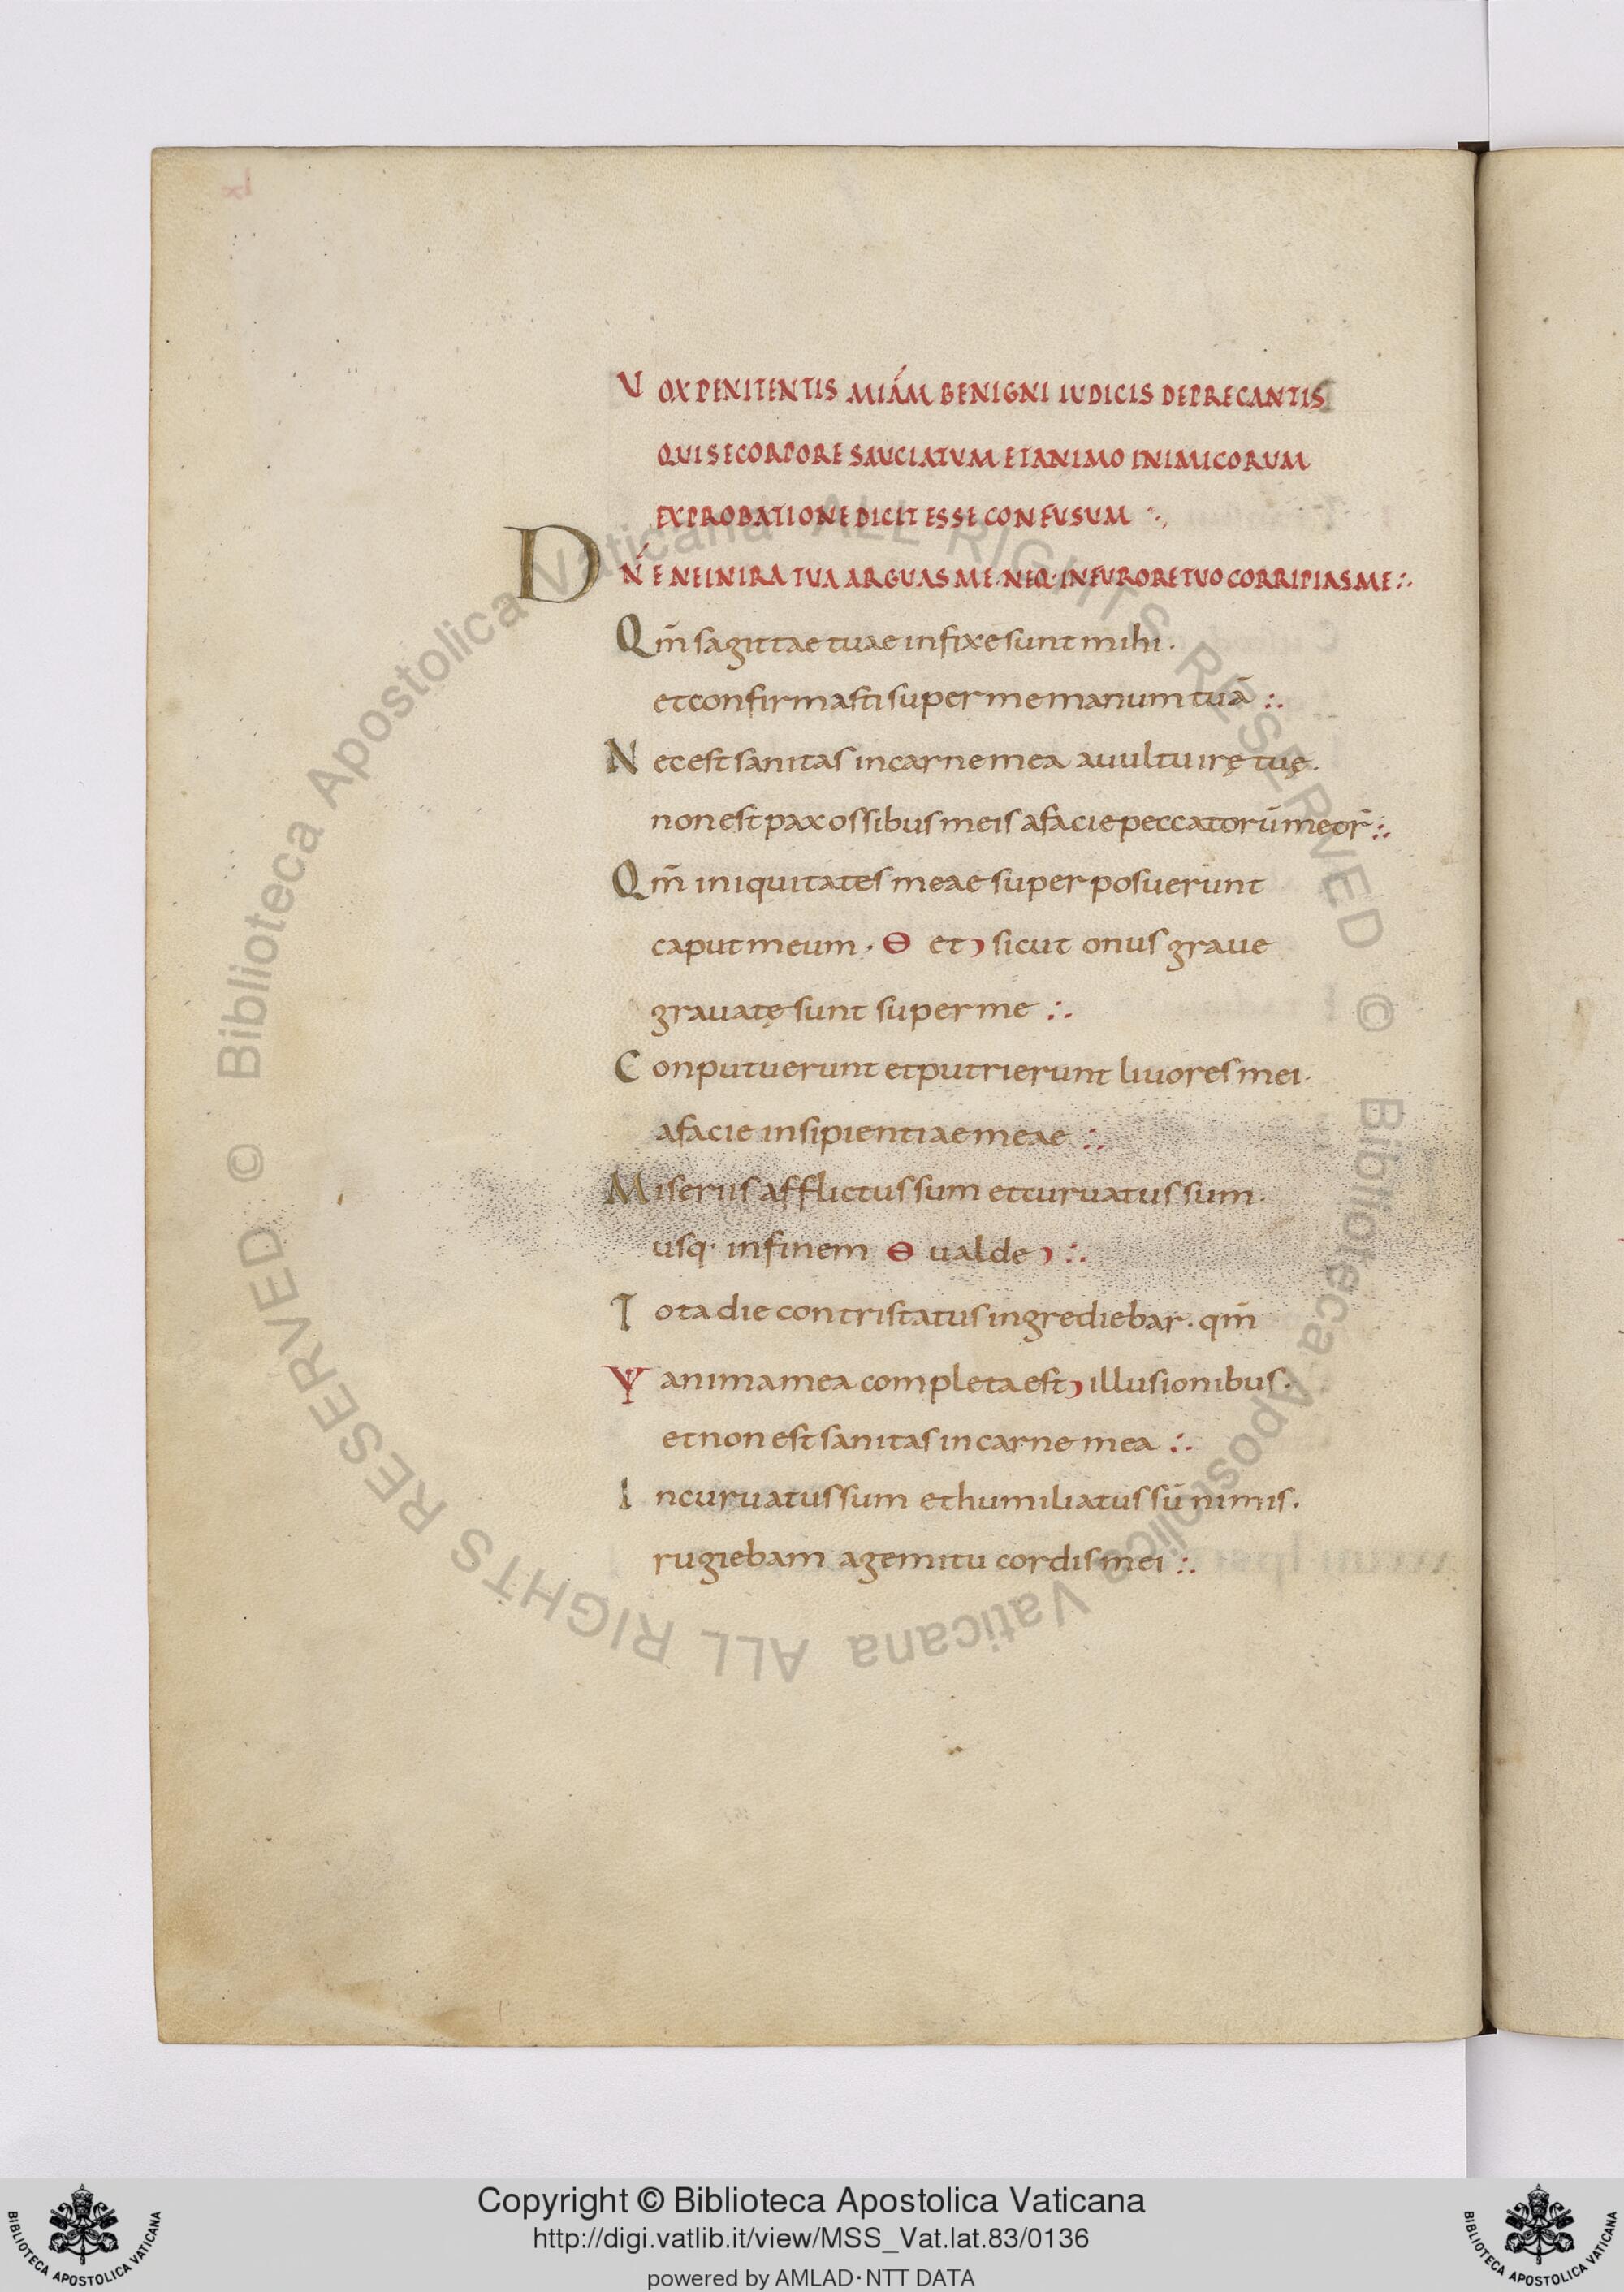 VOX PENITENTIS MIÁM BENIGNI IUDICIS DEPRECANTIS
QUI SE CORPORE SAUCIATUM ET ANIMO INIMICORUM
EXPROBATIONE DICIT ESSE CONFUSUM :.
DŃE NE IN IRA TUA ARGUAS ME · NEQ· IN FURORE TUO CORRIPIAS ME :.
Qm̄ sagittae tuae infixe sunt mihi .
et confirmasti super me manum tuā :.
Nec est sanitas in carne mea a uultu irę tuę .
non est pax ossibus meis a facie peccatorū meor̄ :.
Qm̄ iniquitates meae superposuerunt
caput meum . Ɵ et ϶ sicut onus graue
grauatę sunt super me :.
Conputuerunt et putrierunt liuores mei .
a facie insipientiae meae :.
Miseriis afflictus sum et curuatus sum .
usq· in finem Ɵ ualde ϶ :.
Tota die contristatus ingrediebar . qm̄
Ɏ anima mea completa est ϶ illusionibus .
et non est sanitas in carne mea :.
Incuruatus sum et humiliatus sū nimis .
rugiebam a gemitu cordis mei :.
© Biblioteca Apostolica Vaticana ALL RIGHTS RESERVED © Biblioteca Apostolica Vaticana ALL RIGHTS RESERVED
Copyright © Biblioteca Apostolica Vaticana
http://digi.vatlib.it/view/MSS_Vat.lat.83/0136
powered by AMLAD·NTT DATA
BIBLIOTECA APOSTOLICA VATICANA
BIBLIOTECA APOSTOLICA VATICANA